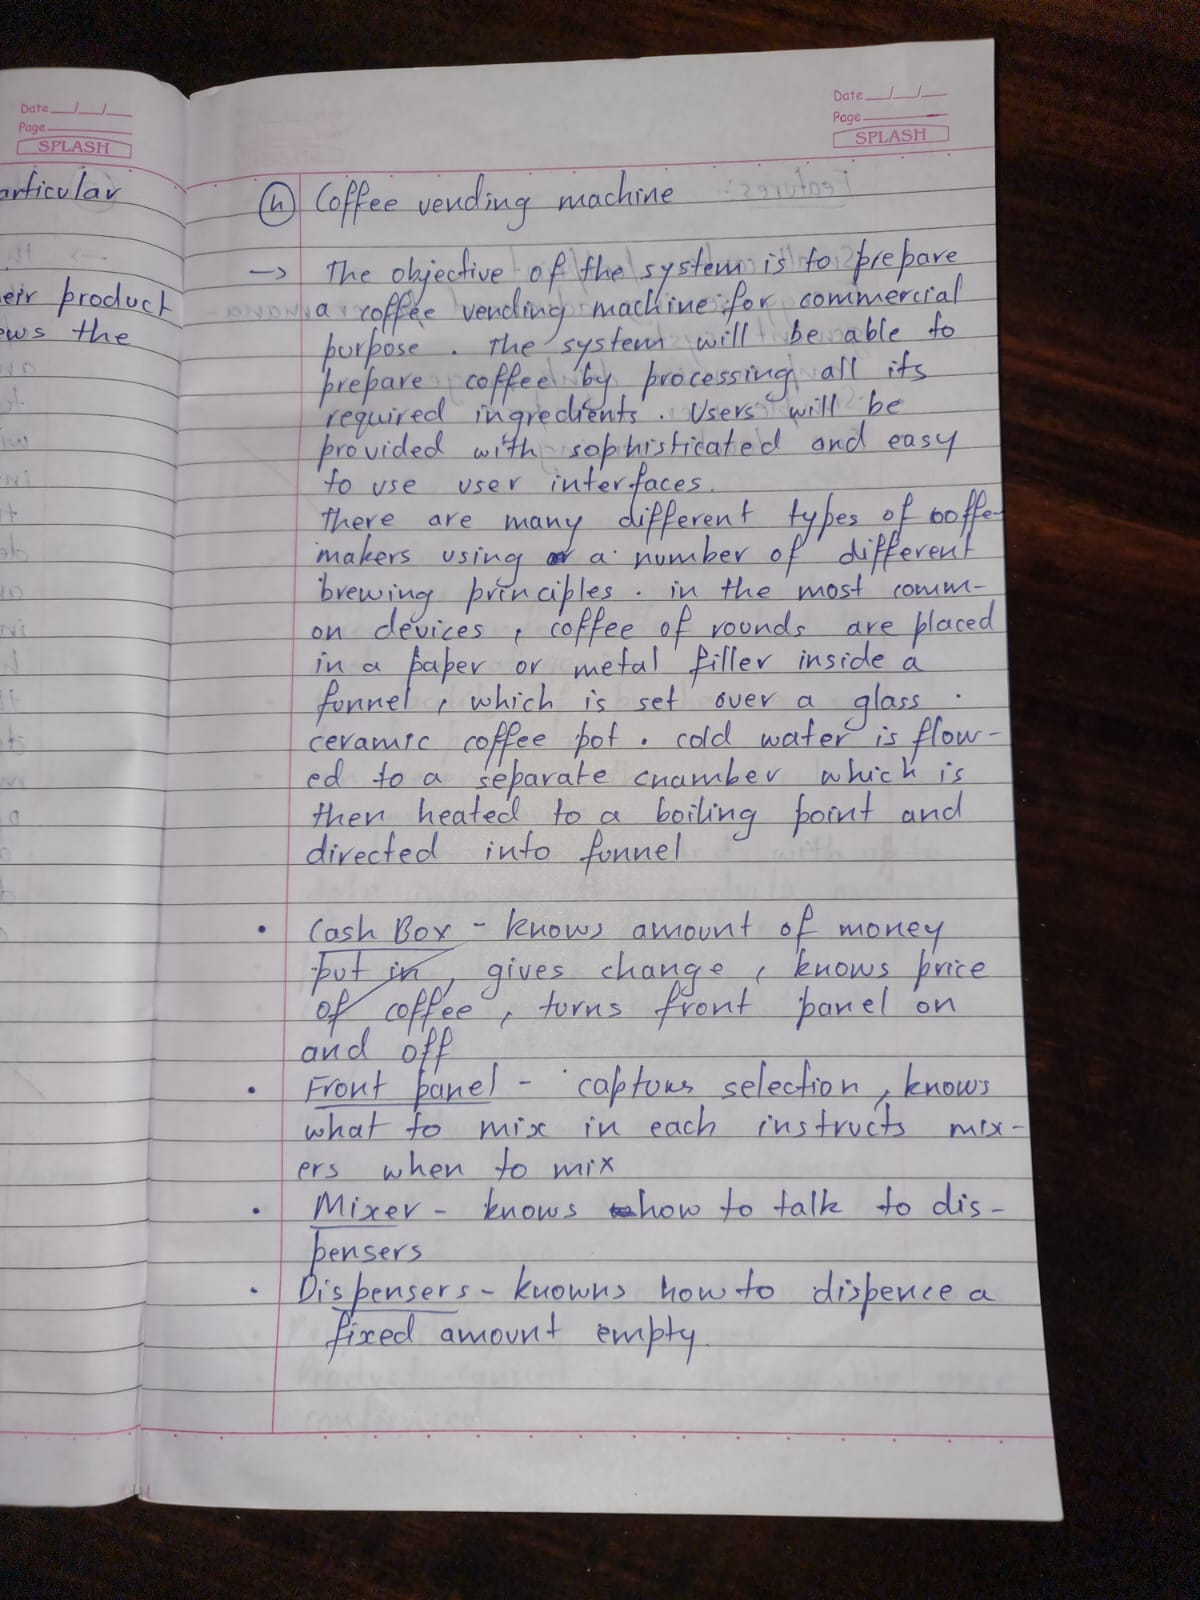 Date
Page
SPLASH
articular
eir product
ews the
Date
Page
SPLASH
(h) Coffee vending machine
→ The objective of the system is to prepare
a coffee vending machine for commercial
purpose. The system will be able to
prepare coffee by processing all its
required ingredients. Users will be
provided with sophisticated and easy
to use user interfaces.
There are many different types of coffe
makers using a number of different
brewing principles. in the most comm-
on devices, coffee of rounds are placed
in a paper or metal filler inside a
funnel, which is set over a glass.
ceramic coffee pot. cold water is flow-
ed to a separate chamber which is
then heated to a boiling point and
directed into funnel
• Cash Box - knows amount of money
put in, gives change, knows price
of coffee, turns front panel on
and off
• Front panel - captures selection, knows
what to mix in each instructs mix-
ers when to mix
• Mixer - knows how to talk to dis-
pensers
• Dispensers - knowns how to dispence a
fixed amount empty.